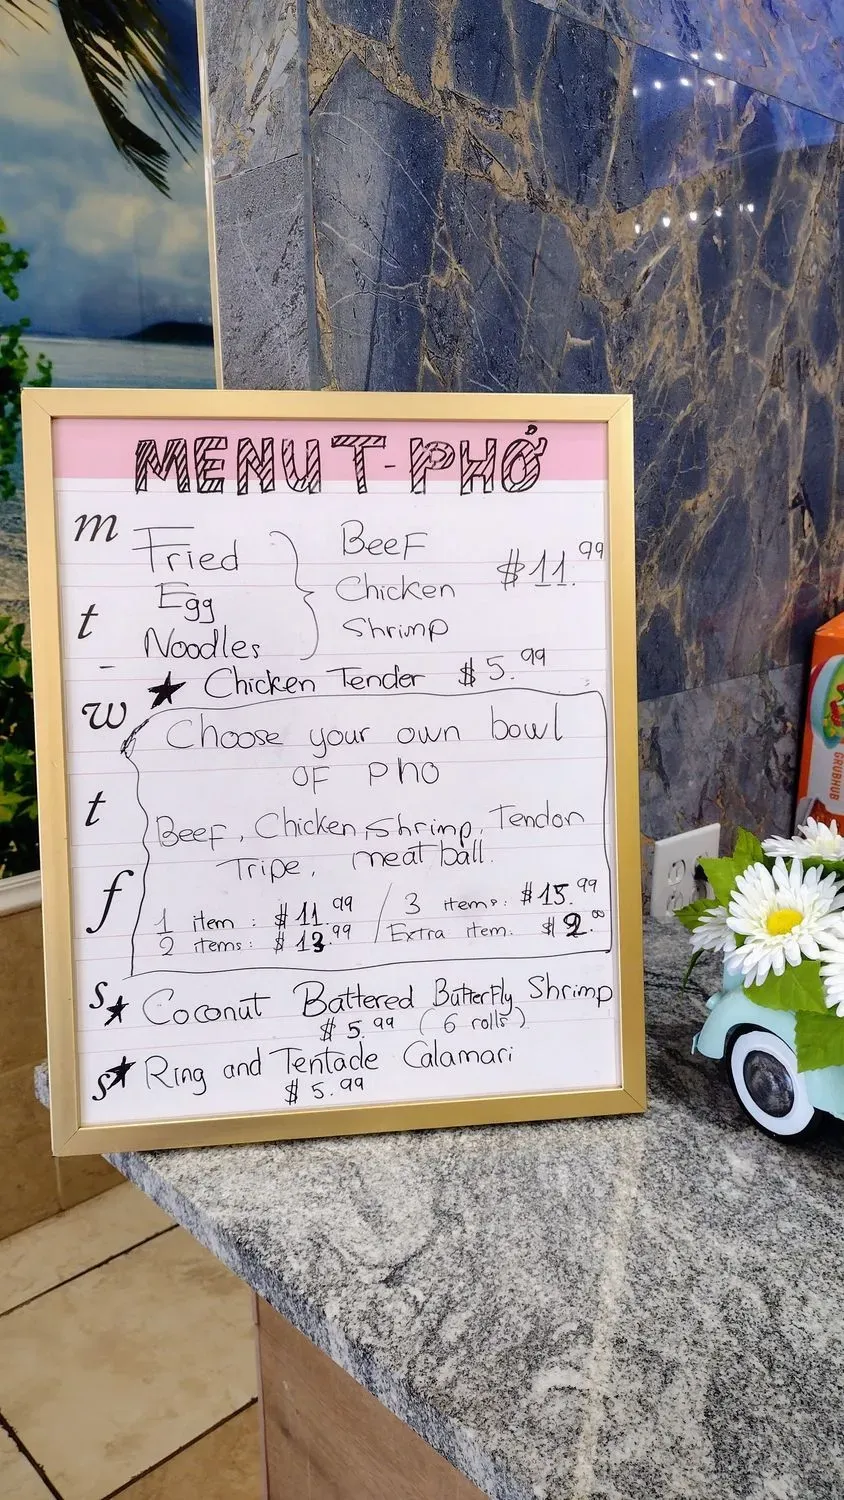 MENU T-PHỞ
m
t
-
w
t
f
s
s
Fried
Egg
Noodles
Beef
Chicken
Shrimp
$11.99
★ Chicken Tender $5.99
Choose your own bowl
OF Pho
Beef, Chicken, Shrimp, Tendon
Tripe, meat ball.
1 item: $11.99 / 3 items: $15.99
2 items: $13.99 / Extra item. $2.00
★ Coconut Battered Butterfly Shrimp
$5.99 (6 rolls)
★ Ring and Tentacle Calamari
$5.99
GRUBHUB